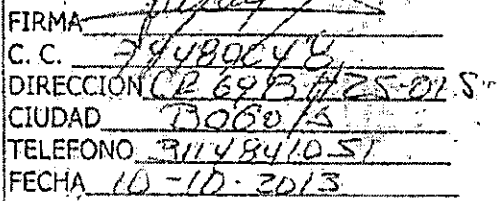 FIRMA
C. C. 79480648
DIRECCION CR 69B # 25-01 S
CIUDAD BOGOTA
TELEFONO 3114841051
FECHA 10-10-2013